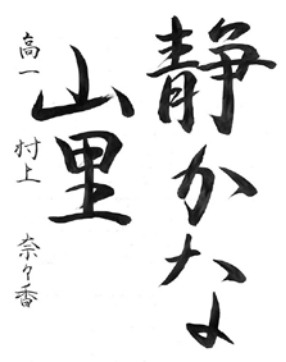 静かな
山里
高一 村上 奈々香